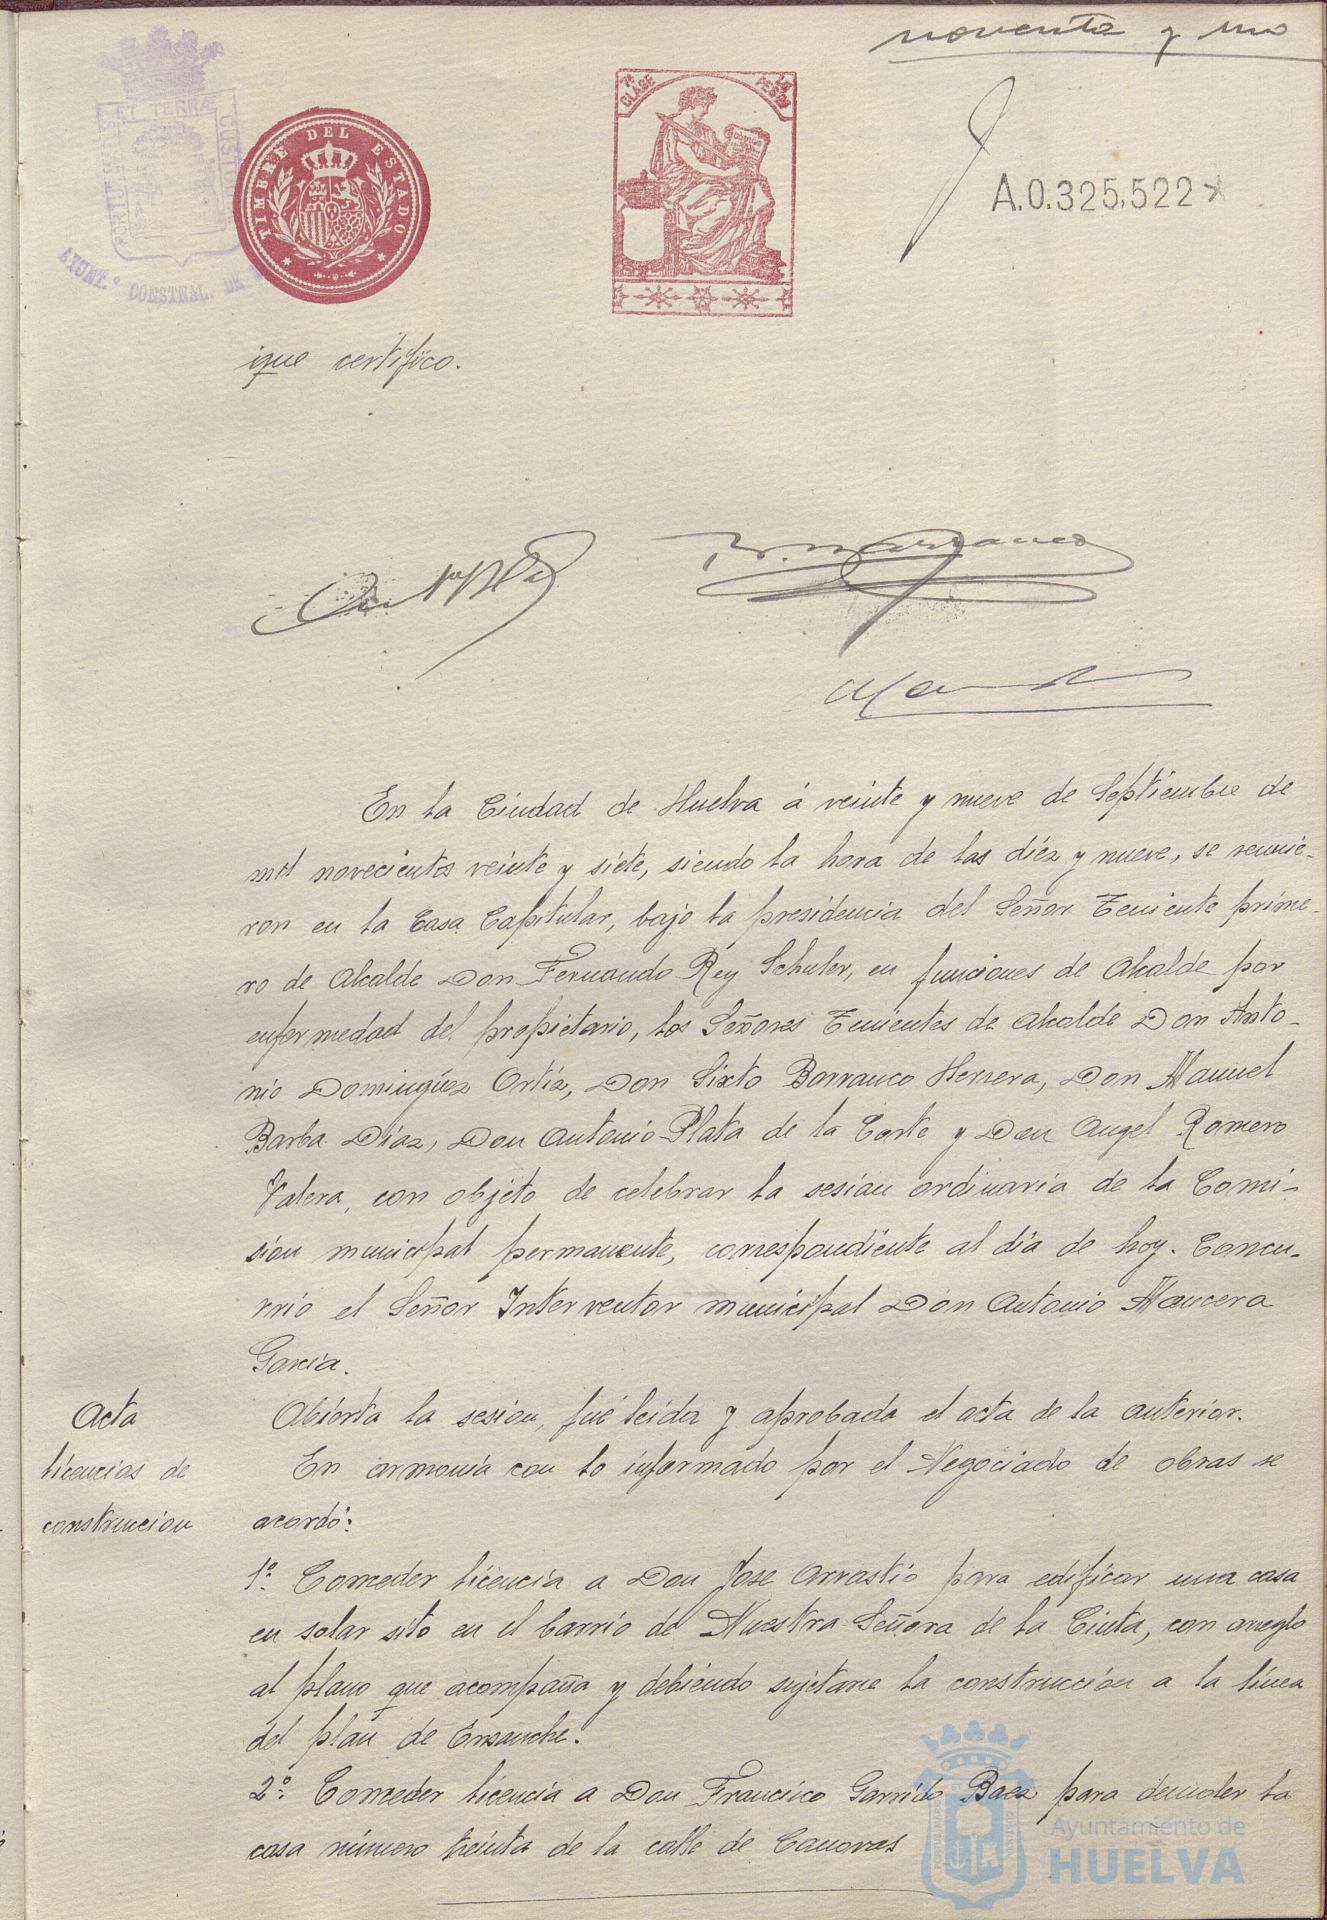 noventa y uno
ET TERRÆ CUST
PORTUS MARIS
AYUNT.º CONSTNAL. DE
TIMBRE DEL ESTADO
7ª CLASE
PESOS
A.0.325,522
que certifico.
En la Ciudad de Huelva á veinte y nueve de Septiembre de
mil novecientos veinte y siete, siendo la hora de las diéz y nueve, se reunie-
ron en la Casa Capitular, bajo la presidencia del Señor Teniente prime-
ro de Alcalde Don Fernando Rey Schuler, en funciones de Alcalde por
enfermedad del propietario, los Señores Tenientes de Alcalde Don Anto-
nio Dominguez Ortiz, Don Sixto Barranco Herrera, Don Manuel
Barba Diaz, Don Antonio Plata de la Corte y Don Angel Romero
Valera, con objeto de celebrar la sesion ordinaria de la Comi-
sion municipal permanente, correspondiente al dia de hoy. Concu-
rrió el Señor Interventor municipal Don Antonio Mancera
Garcia.
Acta
Abierta la sesion, fué leida y aprobada el acta de la anterior.
licencias de
construccion
En armonia con lo informado por el Negociado de obras se
acordó:
1º: Conceder licencia a Don Jose Arrastio para edificar una casa
en solar sito en el barrio de Nuestra Señora de la Cinta, con arreglo
al plano que acompaña y debiendo sujetarse la construcción a la linea
del plan de Ensanche.
2º: Conceder licencia a Don Francisco Garrido Baez para demoler la
casa número treinta de la calle de Canovas
Ayuntamiento de
HUELVA